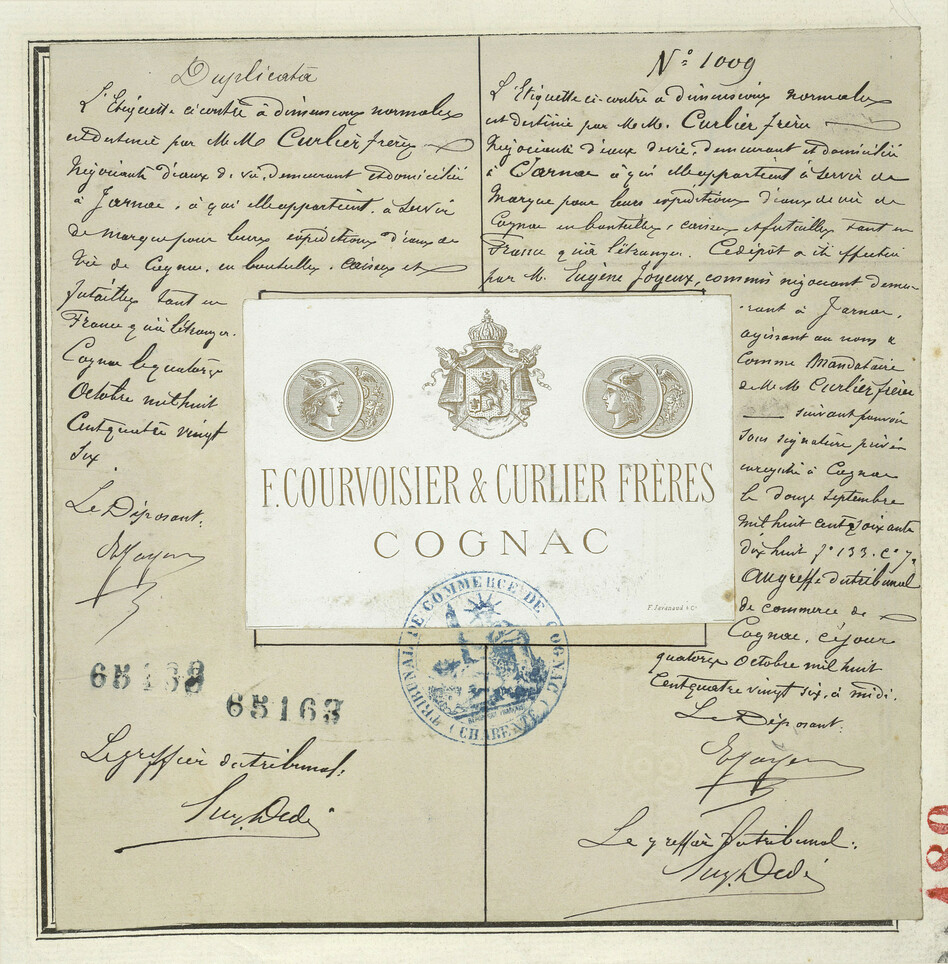 Duplicata
L'Etiquette ci-contre à dimensions normales
est destinée par M.M. Curlier frères
Négociants d'eaux de vie, demeurant et domiciliés
à Jarnac, à qui elle appartient, à servir
de marque pour leurs expéditions d'eaux de
Vie de Cognac, en bouteilles, caisses et
futailles tant en
France qu'à l'étranger.
Cognac le quatorze
Octobre mil huit
Cent quatre vingt
six.
Le Déposant:
65163
Le greffier du tribunal:
N° 1009
L'Etiquette ci-contre à dimensions normales
est destinée par M.M. Curlier frères
Négociants d'eaux de vie, demeurant et domiciliés
à Jarnac à qui elle appartient à servir de
Marque pour leurs expéditions d'eaux de vie de
Cognac en bouteilles, caisses et futailles tant en
France qu'à l'étranger. Ce dépôt a été effectué
par M. Eugène Joyeux, commis négociant demeu-
rant à Jarnac,
agissant au nom &
comme Mandataire
de M.M. Curlier frères
suivant pouvoir
sous signature privée
enregistré à Cognac
le douze septembre
mil huit cent soixante
dix huit f° 133. c° 7.
Au greffe du tribunal
de commerce de
Cognac, ce jour
quatorze Octobre mil huit
Cent quatre vingt six, à midi.
Le Déposant:
Le greffier du tribunal:
F. COURVOISIER & CURLIER FRÈRES
COGNAC
TRIBUNAL DE COMMERCE DE COGNAC
(CHARENTE)
180